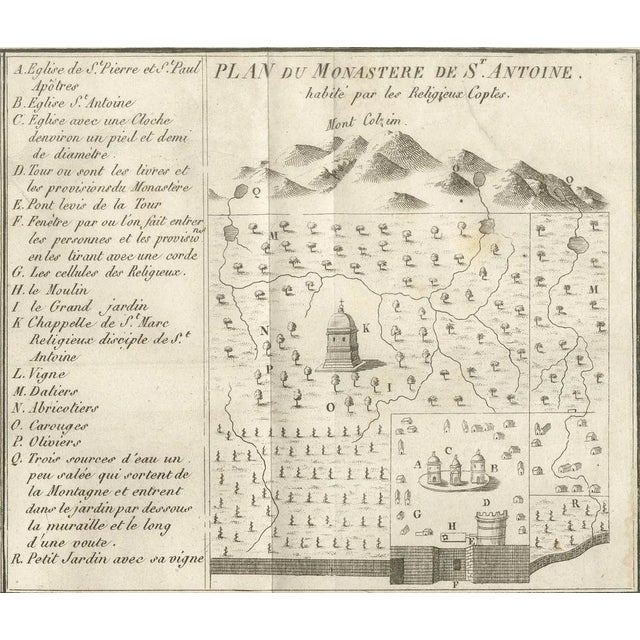 A. Eglise de S.t Pierre et S.t Paul
Apôtres
B. Eglise S.t Antoine
C. Eglise avec une Cloche
d'environ un pied et demi
de diamétre.
D. Tour ou sont les livres et
les provisions du Monastère
E. Pont levis de la Tour
F. Fenètre par ou l'on fait entrer
les personnes et les provisions
en les tirant avec une corde
G. Les cellules des Religieux.
H. le Moulin
I le Grand jardin
K Chappelle de S.t Marc
Religieux disciple de S.t
Antoine
L. Vigne
M. Datiers
N. Abricotiers
O. Carouges
P. Oliviers
Q. Trois sources d'eau un
peu salée qui sortent de
la Montagne et entrent
dans le jardin par dessous
la muraille et le long
d'une voute.
R. Petit Jardin avec sa vigne
PLAN DU MONASTERE DE S.T ANTOINE.
habité par les Religieux Coptes.
Mont Colzim.
Q
O
O
M
M
N
K
P
I
O
B
A C
L
D
G
R
H
E
F